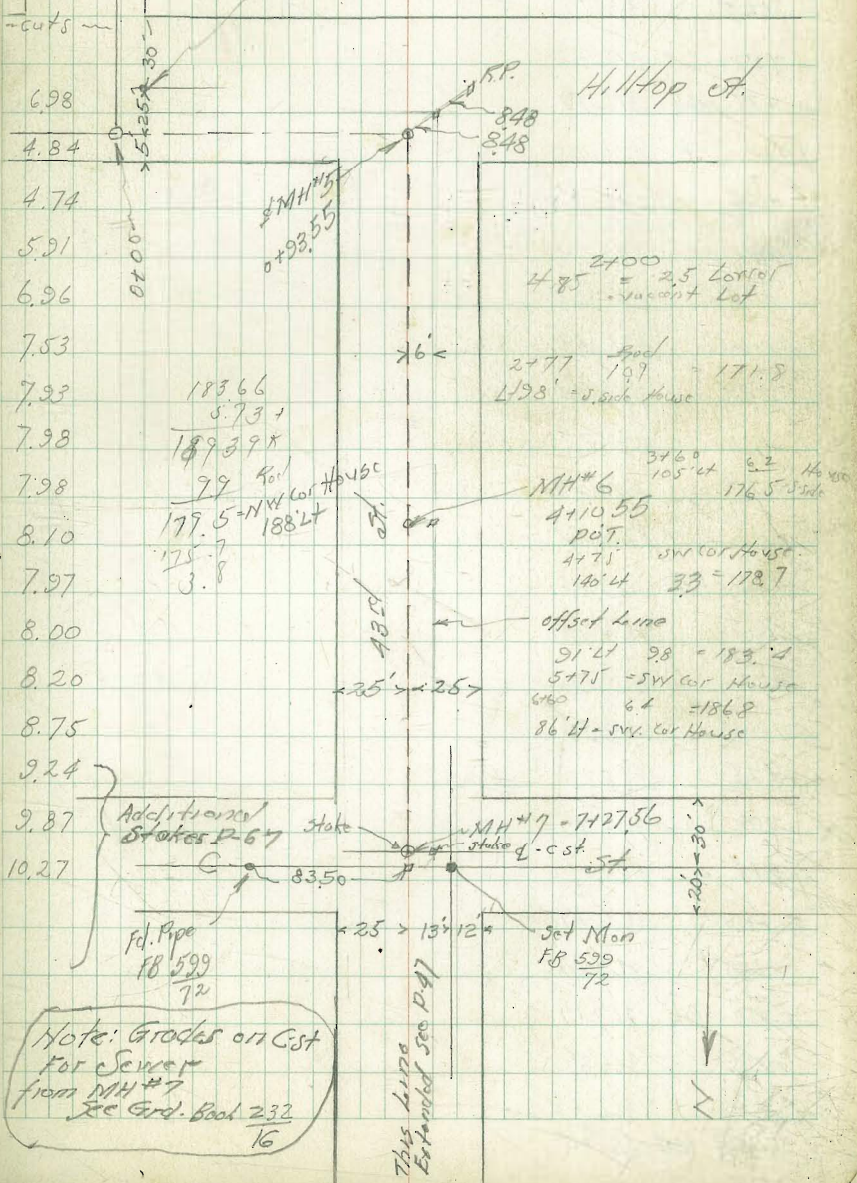 -cuts-
6.98
4.84
4.74
5.91
6.96
7.53
7.93
7.98
7.98
8.10
7.97
8.00
8.20
8.75
9.24
9.87
10.27
>5<25><30'
0+00
R.P.
8.48
8.48
Hilltop St.
MH#5
0+93.55
2+00
4.85 = 2.5
vacant Lot
>6'<
2+77 Rod
10.9 = 171.8
L+98' = S. side House
183.66
5.73+
189.39 ⊼
9.9 Rod
179.5 = NW Cor House
188' Lt
175.7
3.8
3+60
105' Lt 6.2 House
176.5 S side
MH#6
4+10.55
P.O.T.
4+75 SW Cor House
140' Lt 3.3 = 178.7
43rd St.
offset Line
91' Lt 9.8 = 183.4
5+75 = SW Cor House
6+60 6.4 = 186.8
86' Lt = SW. Cor House
<25'><25>
Additional
Stakes P-67
Stake
MH#7 = 7+27.56
stake ¢ - C St.
C St.
83.50
<20><30'>
Fd. Pipe
FB 599
72
<25> 13' 12'
Set Mon
FB 599
72
Note: Grades on C St
For Sewer
from MH #7
See Grd. Book 232
16
This Line
Extended See P.47
N